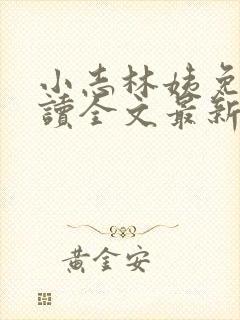 小志林姨免
讀全文最新
黃金安